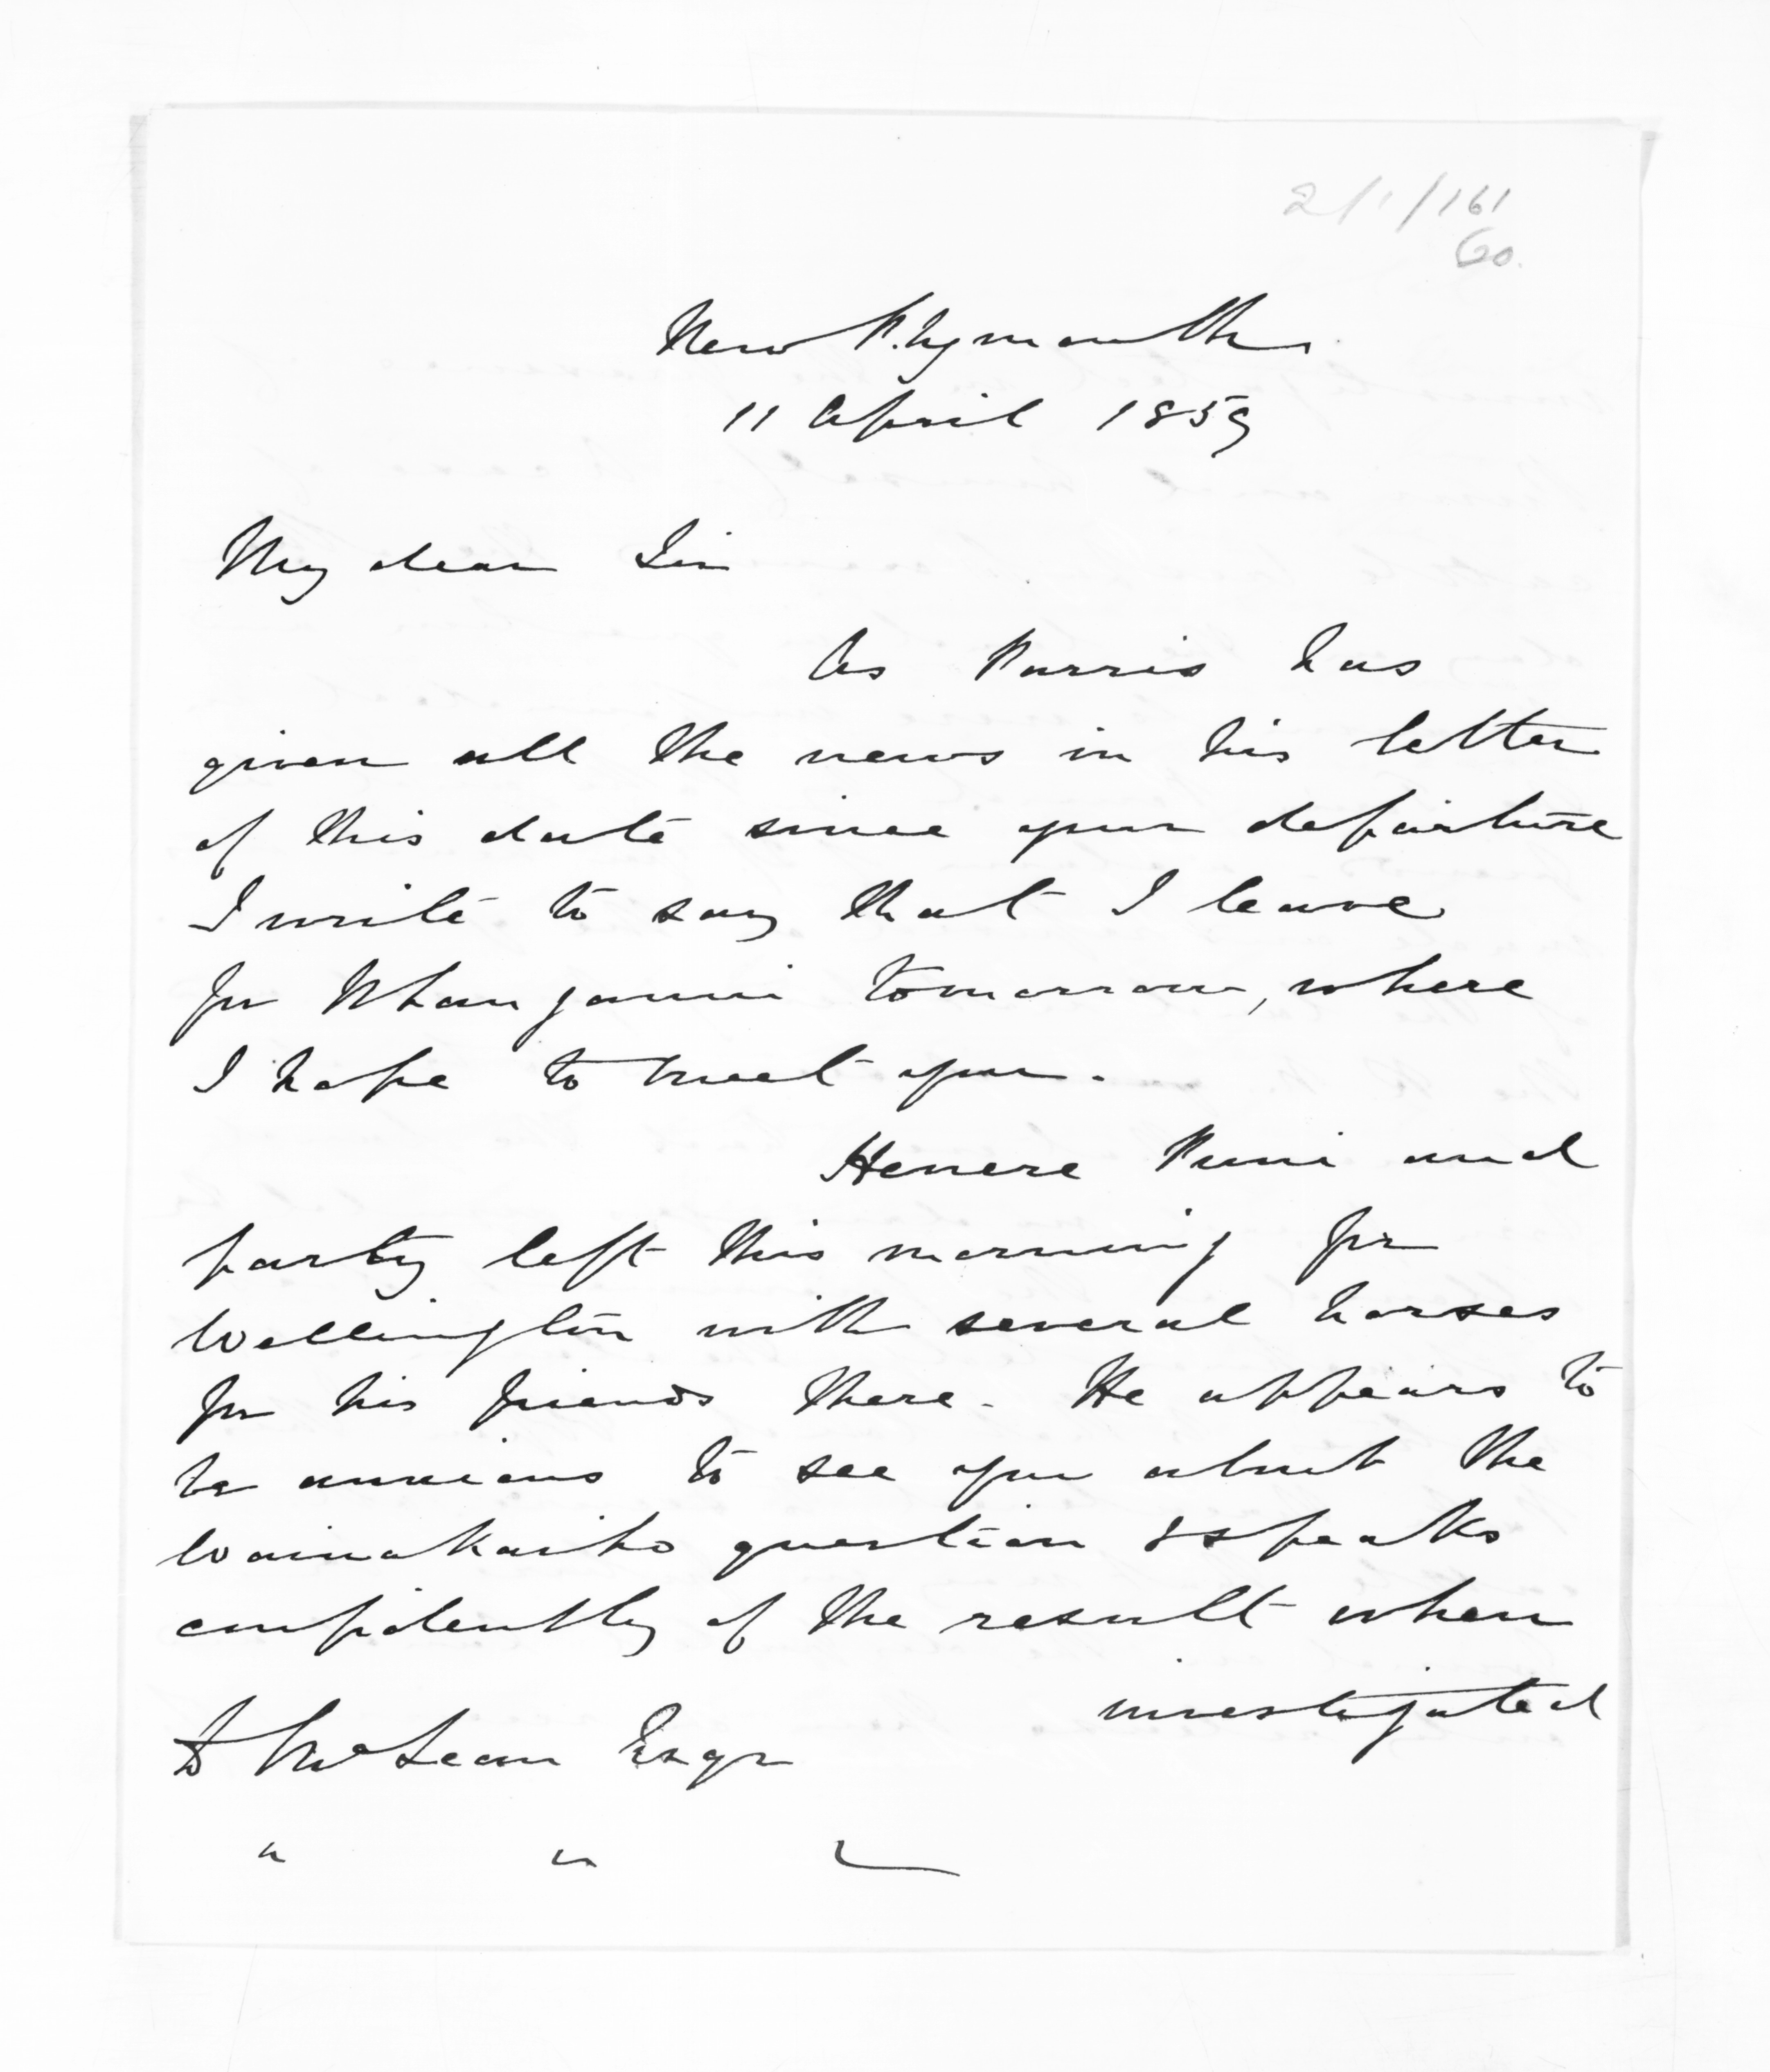 2/1/161
60.
New Plymouth
11 April 1859
My dear Sir
As Parris has
given all the news in his letter
of this date since your departure
I write to say that I leave
for Whanganui tomorrow, where
I hope to meet you.
Henere Puni and
party left this morning for
Wellington with several horses
for his friends there. He appears to
be anxious to see you about the
Waiwakaiho question & speaks
confidently of the result when
investigated
D McLean Esqr
" "